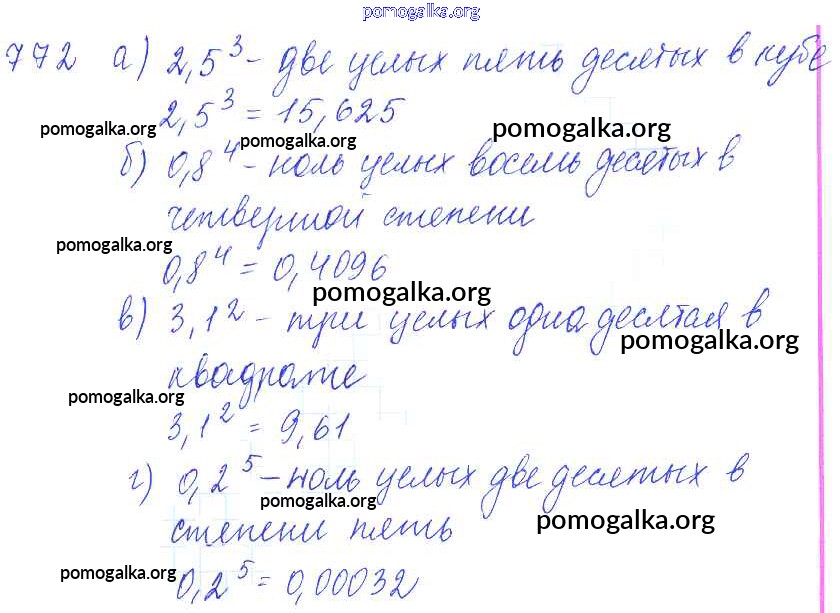 pomogalka.org
772 а) 2,5³ - две целых пять десятых в кубе
2,5³ = 15,625
pomogalka.org pomogalka.org pomogalka.org
б) 0,8⁴ - ноль целых восемь десятых в
четвертой степени
pomogalka.org
0,8⁴ = 0,4096
pomogalka.org
в) 3,1² - три целых одна десятая в
pomogalka.org
квадрате
pomogalka.org
3,1² = 9,61
г) 0,2⁵ - ноль целых две десятых в
pomogalka.org
степени пять
pomogalka.org
pomogalka.org
0,2⁵ = 0,00032